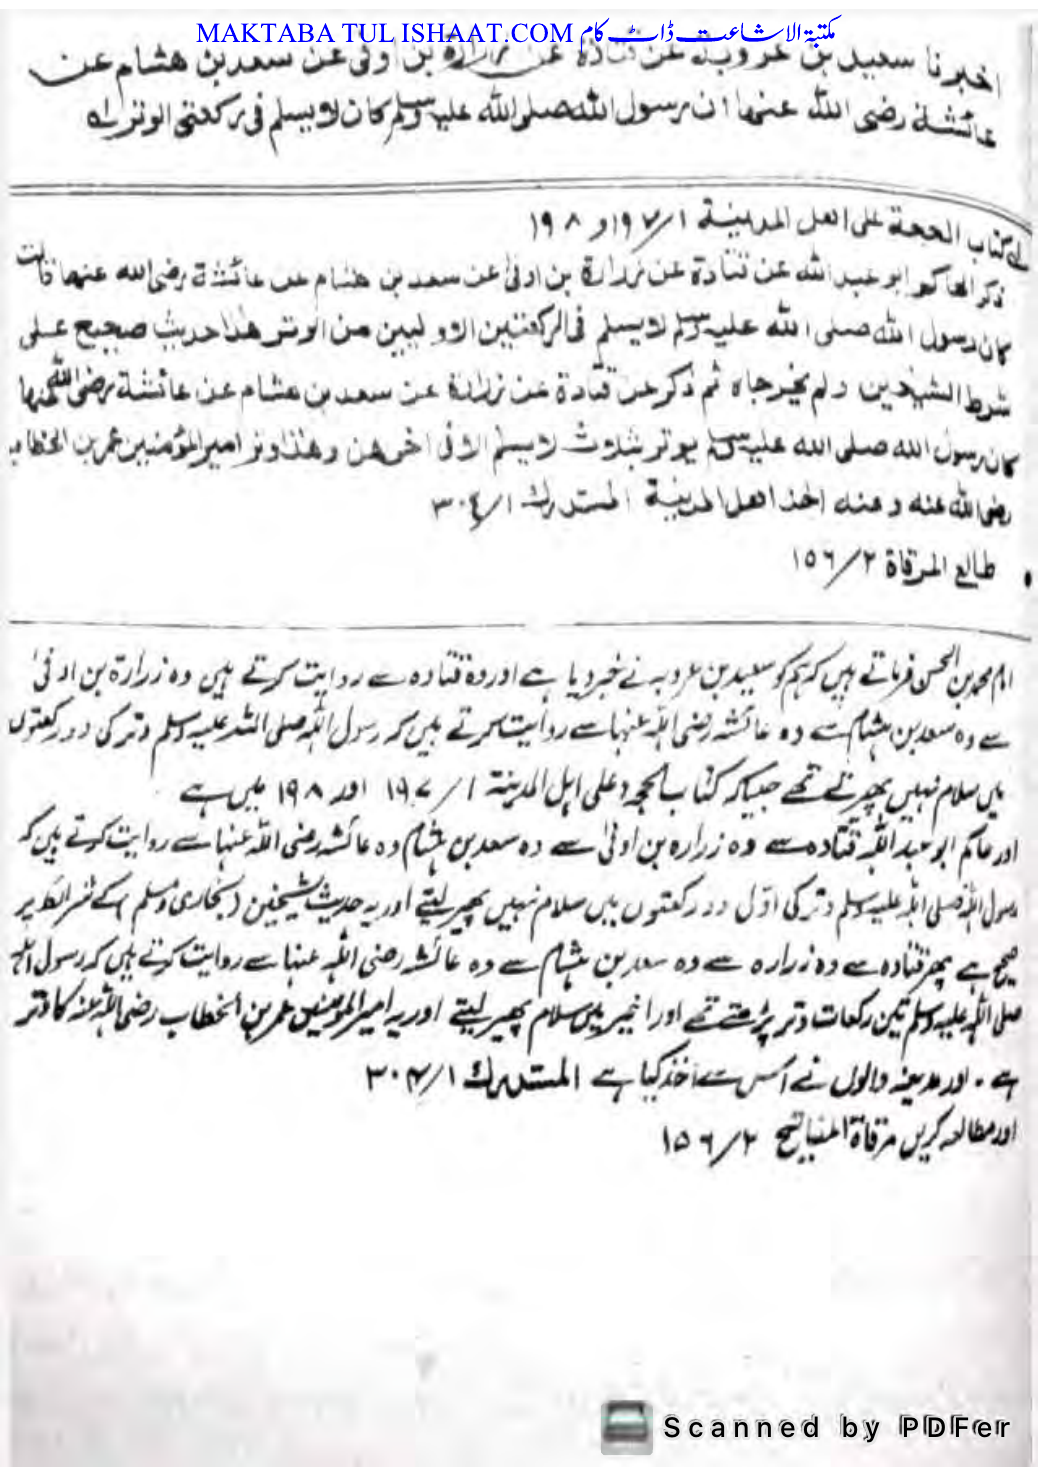 MAKTABA TUL ISHAAT.COM مکتبۃ الاشاعت ڈاٹ کام
اخبرنا سعید بن عروبة عن قتادة عن زرارة بن اوفی عن سعد بن هشام عن
عائشة رضی الله عنها ان رسول الله صلی الله علیه وسلم کان لا یسلم فی رکعتی الوتر له
له کتاب الحجة علی اهل المدینة ۱/۱۹۷ و ۱۹۸
ذکر الحاکم ابو عبد الله عن قتادة عن زرارة بن اوفیٰ عن سعد بن هشام عن عائشة رضی الله عنها قالت
کان رسول الله صلی الله علیه وسلم لا یسلم فی الرکعتین الاولیین من الوتر هذا حدیث صحیح علی
شرط الشیخین ولم یخرجاه ثم ذکر عن قتادة عن زرارة عن سعد بن هشام عن عائشة رضی الله عنها
کان رسول الله صلی الله علیه وسلم یوتر بثلاث لا یسلم الا فی اخرهن وهذا وتر امیر المؤمنین عمر بن الخطاب
رضی الله عنه وعنه اخذ اهل المدینة المستدرك ۱/۳۰٤
• طالع المرقاة ۲/۱۵٦
امام محمد بن الحسن فرماتے ہیں کہ ہم کو سعید بن عروبہ نے خبر دیا ہے اور وہ قتادہ سے روایت کرتے ہیں وہ زرارۃ بن اوفیٰ
سے وہ سعد بن ہشام سے وہ عائشہ رضی اللہ عنہا سے روایت کرتے ہیں کہ رسول اللہ صلی اللہ علیہ وسلم وتر کی دو رکعتوں
میں سلام نہیں پھیرتے تھے جیسا کہ کتاب الحجہ علی اہل المدینۃ ۱/۱۹۷ اور ۱۹۸ میں ہے
اور حاکم ابو عبد اللہ قتادہ سے وہ زرارہ بن اوفیٰ سے وہ سعد بن ہشام وہ عائشہ رضی اللہ عنہا سے روایت کرتے ہیں کہ
رسول اللہ صلی اللہ علیہ وسلم وتر کی اوّل دو رکعتوں میں سلام نہیں پھیر لیتے اور یہ حدیث شیخین (بخاری و مسلم) کے شرائط پر
صحیح ہے پھر قتادہ سے وہ زرارہ سے وہ سعد بن ہشام سے وہ عائشہ رضی اللہ عنہا سے روایت کرتے ہیں کہ رسول اللہ
صلی اللہ علیہ وسلم تین رکعات وتر پڑھتے تھے اور اخیر میں سلام پھیر لیتے اور یہ امیر المومنین عمر بن الخطاب رضی اللہ عنہ کا وتر
ہے۔ اور مدینہ والوں نے اس سے اخذ کیا ہے المستدرك ۱/۳۰۴
اور مطالعہ کریں مرقاۃ المفاتیح ۲/۱۵۶
Scanned by PDFer